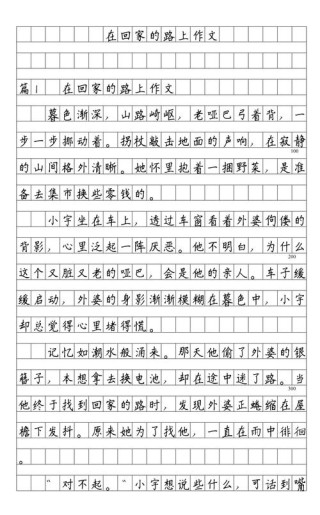 在回家的路上作文
篇1 在回家的路上作文
暮色渐深，山路崎岖，老哑巴弓着背，一
步一步挪动着。拐杖敲击地面的声响，在寂静
100
的山间格外清晰。她怀里抱着一捆野菜，是准
备去集市换些零钱的。
小宇坐在车上，透过车窗看着外婆佝偻的
背影，心里泛起一阵厌恶。他不明白，为什么
200
这个又脏又老的哑巴，会是他的亲人。车子缓
缓启动，外婆的身影渐渐模糊在暮色中，小宇
却总觉得心里堵得慌。
记忆如潮水般涌来。那天他偷了外婆的银
簪子，本想拿去换电池，却在途中迷了路。当
300
他终于找到回家的路时，发现外婆正蜷缩在屋
檐下发抖。原来她为了找他，一直在雨中徘徊
。
“对不起。”小宇想说些什么，可话到嘴